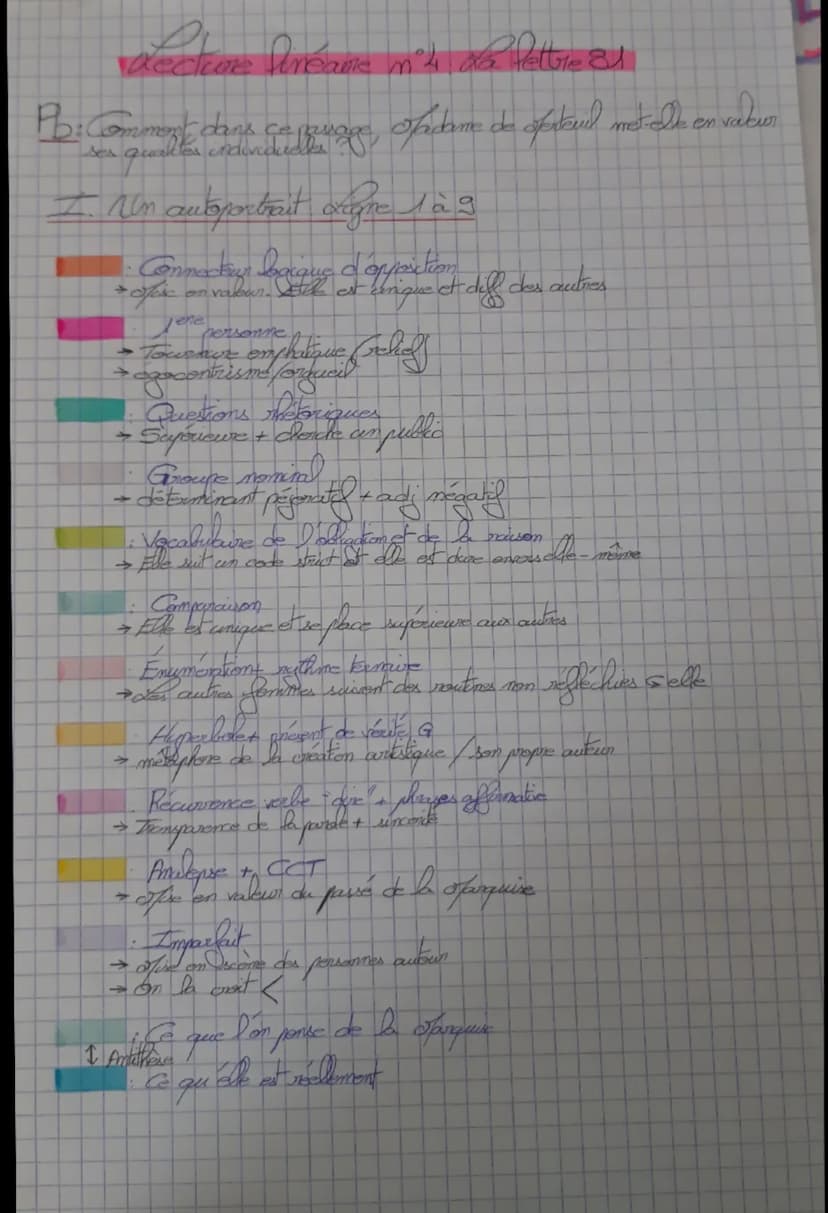 Lecture linéaire n°4 La lettre 81
Pb: Comment dans ce passage, Madame de Merteuil met-elle en valeur
ses qualités individuelles ?
I. Un autoportrait Ligne 1 à 9
: Connecteur logique d'opposition
→ Mise en valeur. est unique et diff des autres
1ere personne
→ Tournure emphatique (relief)
→ egocentrisme/orgueil
: Questions rhétoriques
→ Supérieure + cherche un public
Groupe nominal
→ déterminant péjoratif + adj négatif
: Vocabulaire de l'obligation et de la raison
→ Elle suit un code strict et elle est dure envers elle-même
: Comparaison
→ Elle est unique et se place supérieure aux autres
Énumération + rythme ternaire
→ Les autres femmes suivent des routines non réfléchies elle
Hyperbole + présent de vérité G
→ métaphore de la création artistique / son propre auteur
Récurrence verbe "dire" + phrases affirmative
→ Transparence de la parole + sincérité
Analepse + CCT
→ Mise en valeur du passé de la Marquise
: Imparfait
→ Mise en scène des personnes autour
→ On la croit <
: Ce que l'on pense de la Marquise
↕ Antithèse
: Ce qu'elle est réellement